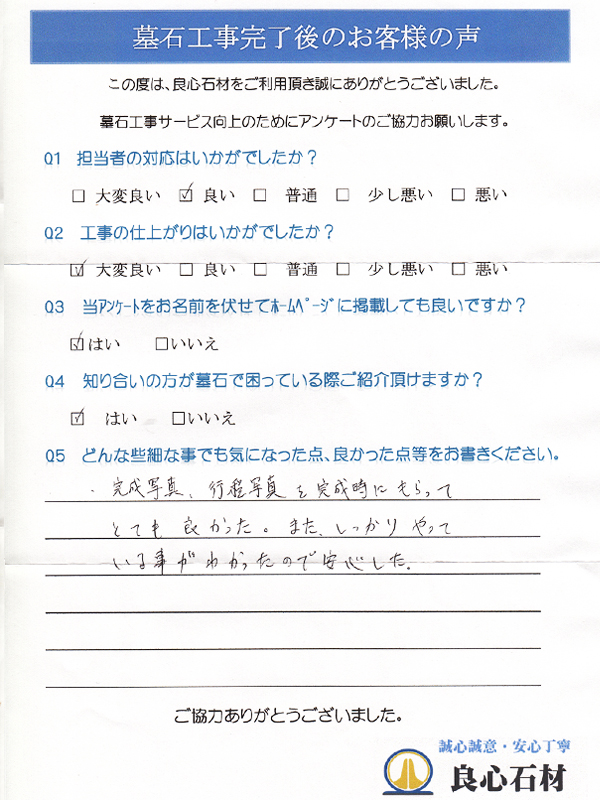 墓石工事完了後のお客様の声
この度は、良心石材をご利用頂き誠にありがとうございました。
墓石工事サービス向上のためにアンケートのご協力お願いします。
Q1 担当者の対応はいかがでしたか？
☐ 大変良い ☑ 良い ☐ 普通 ☐ 少し悪い ☐ 悪い
Q2 工事の仕上がりはいかがでしたか？
☑ 大変良い ☐ 良い ☐ 普通 ☐ 少し悪い ☐ 悪い
Q3 当ｱﾝｹｰﾄをお名前を伏せてﾎｰﾑﾍﾟｰｼﾞに掲載しても良いですか？
☑はい ☐いいえ
Q4 知り合いの方が墓石で困っている際ご紹介頂けますか？
☑ はい ☐いいえ
Q5 どんな些細な事でも気になった点、良かった点等をお書きください。
・完成写真、行程写真を完成時にもらって
とても良かった。また、しっかりやって
いる事がわかったので安心した。
ご協力ありがとうございました。
誠心誠意・安心丁寧
良心石材